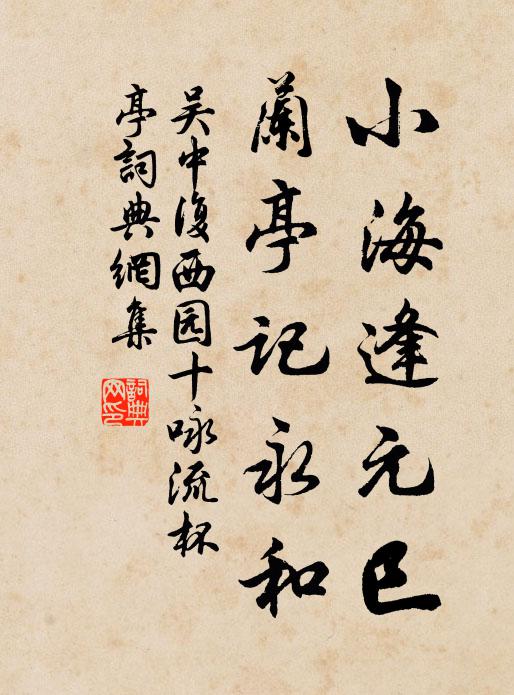 小海逢元巳
蘭亭记永和
吴中復西园十咏流杯
亭詞典網集
詞典
网印